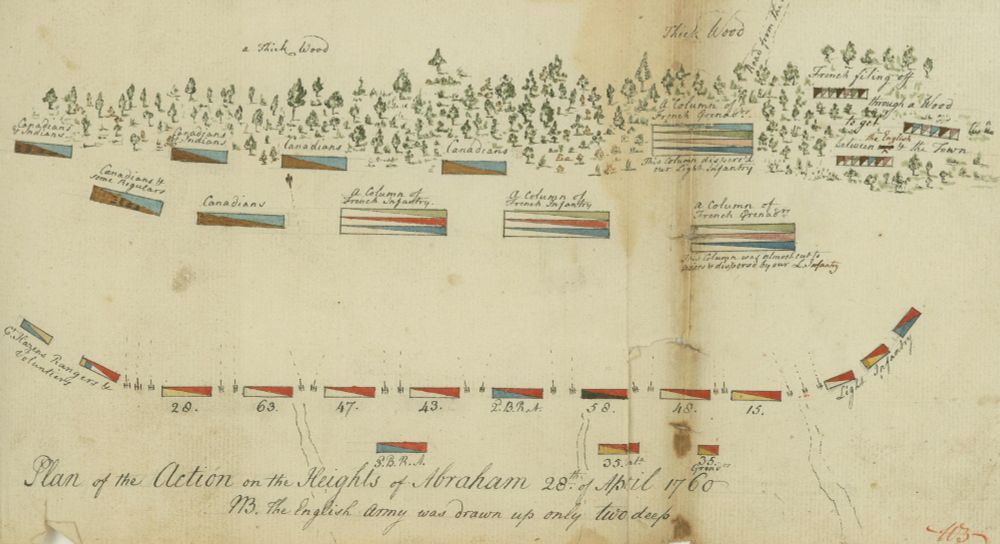 a Thick Wood
Thick Wood
Road from the
French filing off
through a Wood
to get
the English
between & the Town
Canadians
& Indians
Canadians
& Indians
Canadians
Canadians
A Column of
French Grenad.rs
This Column dispers'd
our Light Infantry
Canadians &
some Regulars
Canadians
A Column of
French Infantry
A Column of
French Infantry
A Column of
French Grenad.rs
This Column was almost cut to
pieces & dispersed by our L. Infantry
Hazens Rangers &
Volunteers
28.
63.
47.
43.
2.B.R.A
58.
48.
15.
Light Infantry
3.B.R.A.
35.
35.
Plan of the Action on the Heights of Abraham 28.th of April 1760
NB. The English Army was drawn up only two deep